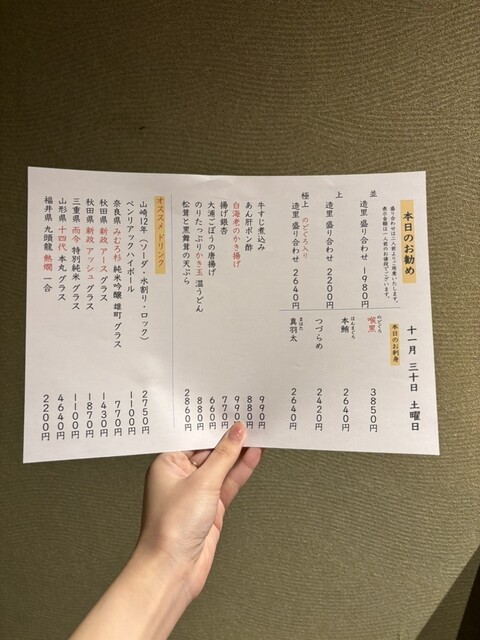 本日のお勧め
十一月 三十日 土曜日
盛り合わせは二人前よりご用意いたします。
表示金額は一人前のお値段でございます。
並 造里盛り合わせ 1980円
上 造里盛り合わせ 2200円
極上 のどぐろ入り 造里盛り合わせ 2640円
本日のお刺身
喉黒 のどぐろ 3850円
本鮪 ほんまぐろ 2640円
つづらめ 2420円
真羽太 まはた 2640円
牛すじ煮込み 990円
あん肝ポン酢 880円
白海老のかき揚げ 990円
揚げ銀杏 770円
大浦ごぼうの唐揚げ 660円
のりたっぷりかき玉 温うどん 880円
松茸と黒舞茸の天ぷら 2860円
オススメドリンク
山崎12年(ソーダ・水割り・ロック) 2750円
ベンリアックハイボール 1100円
奈良県 みむろ杉 純米吟醸 雄町 グラス 770円
秋田県 新政 アース グラス 1430円
秋田県 新政 アッシュ グラス 1870円
三重県 而今 特別純米 グラス 1100円
山形県 十四代 本丸 グラス 4640円
福井県 九頭龍 熱燗 一合 2200円